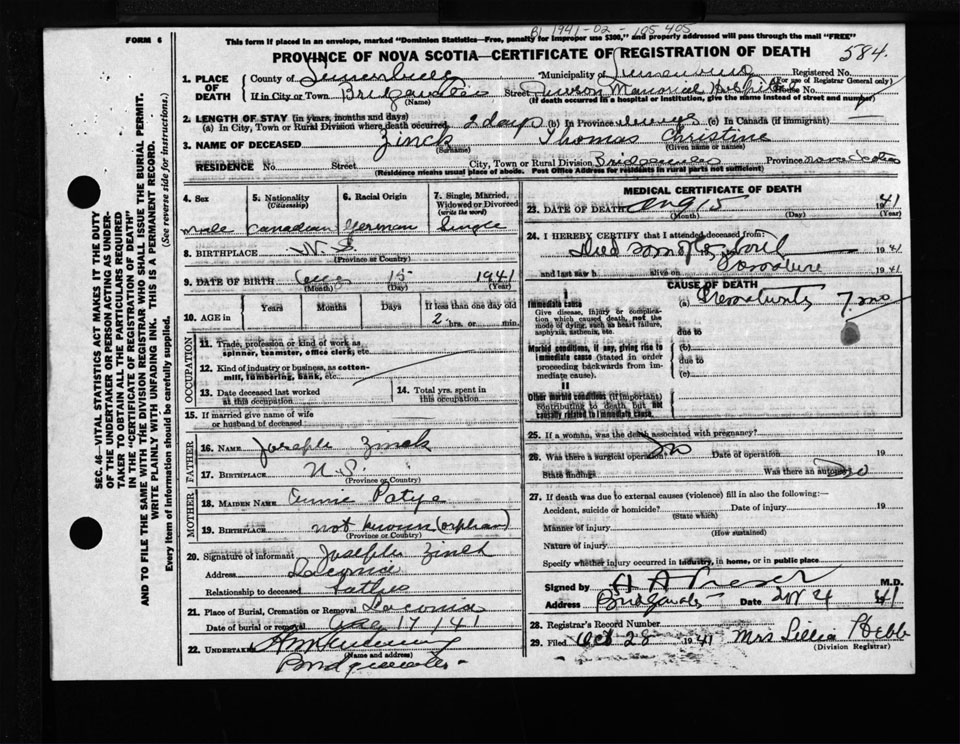 1941-02-105405
FORM 6
This form if placed in an envelope, marked "Dominion Statistics—Free, penalty for improper use $300," and properly addressed will pass through the mail "FREE"
PROVINCE OF NOVA SCOTIA—CERTIFICATE OF REGISTRATION OF DEATH
584.
1. PLACE OF DEATH
County of Lunenburg
Municipality of Lunenburg
Registered No.
(For use of Registrar General only)
If in City or Town Bridgewater
(Name)
Street Dawson Memorial Hospital
House No.
(If death occurred in a hospital or institution, give the name instead of street and number)
2. LENGTH OF STAY (in years, months and days)
(a) In City, Town or Rural Division where death occurred 2 days (b) In Province always (c) In Canada (if immigrant)
3. NAME OF DECEASED Zinck Thomas Christine
(Surname) (Given name or names)
RESIDENCE No. Street City, Town or Rural Division Bridgewater Province Nova Scotia
(Residence means usual place of abode. Post Office Address for residents in rural parts not sufficient)
4. Sex
male
5. Nationality
(Citizenship)
Canadian
6. Racial Origin
German
7. Single, Married, Widowed or Divorced
(write the word)
Single
8. BIRTHPLACE N. S.
(Province or Country)
9. DATE OF BIRTH Aug 15 1941
(Month) (Day) (Year)
10. AGE in
Years Months Days If less than one day old
2 hrs. or min.
OCCUPATION
11. Trade, profession or kind of work as spinner, teamster, office clerk, etc.
12. Kind of industry or business, as cotton-mill, lumbering, bank, etc.
13. Date deceased last worked at this occupation
14. Total yrs. spent in this occupation
15. If married give name of wife or husband of deceased
FATHER
16. NAME Joseph Zinck
17. BIRTHPLACE N. S.
(Province or Country)
MOTHER
18. MAIDEN NAME Annie
19. BIRTHPLACE not known (orphan)
(Province or Country)
20. Signature of informant Joseph Zinck
Address Laconia
Relationship to deceased Father
21. Place of Burial, Cremation or Removal Laconia
Date of burial or removal Aug 17/41
22. UNDERTAKER
(Name and address)
Bridgewater
MEDICAL CERTIFICATE OF DEATH
23. DATE OF DEATH Aug 15 1941
(Month) (Day) (Year)
24. I HEREBY CERTIFY that I attended deceased from:
Died 1941
and last saw h alive on 1941
CAUSE OF DEATH
I
Immediate cause
Give disease, injury or complication which caused death, not the mode of dying, such as heart failure, asphyxia, asthenia, etc.
(a) Prematurity 7 mo
due to
Morbid conditions, if any, giving rise to immediate cause (stated in order proceeding backwards from immediate cause).
(b)
due to
(c)
II
Other morbid conditions (if important) contributing to death but not causally related to immediate cause.
25. If a woman, was the death associated with pregnancy?
26. Was there a surgical operation? no Date of operation
State findings Was there an autopsy? no
27. If death was due to external causes (violence) fill in also the following:—
Accident, suicide or homicide? Date of injury 19
(State which)
Manner of injury
(How sustained)
Nature of injury
Specify whether injury occurred in industry, in home, or in public place
Signed by M.D.
Address Bridgewater Date Nov 4 41
28. Registrar's Record Number
29. Filed Oct 28 1941 Mrs Lillia Hebb
(Division Registrar)
SEC. 46—VITAL STATISTICS ACT MAKES IT THE DUTY
OF THE UNDERTAKER OR PERSON ACTING AS UNDERTAKER TO OBTAIN ALL THE PARTICULARS REQUIRED
IN THE "CERTIFICATE OF REGISTRATION OF DEATH"
AND TO FILE THE SAME WITH THE DIVISION REGISTRAR WHO SHALL ISSUE THE BURIAL PERMIT.
WRITE PLAINLY WITH UNFADING INK. THIS IS A PERMANENT RECORD.
Every item of information should be carefully supplied. (See reverse side for instructions).